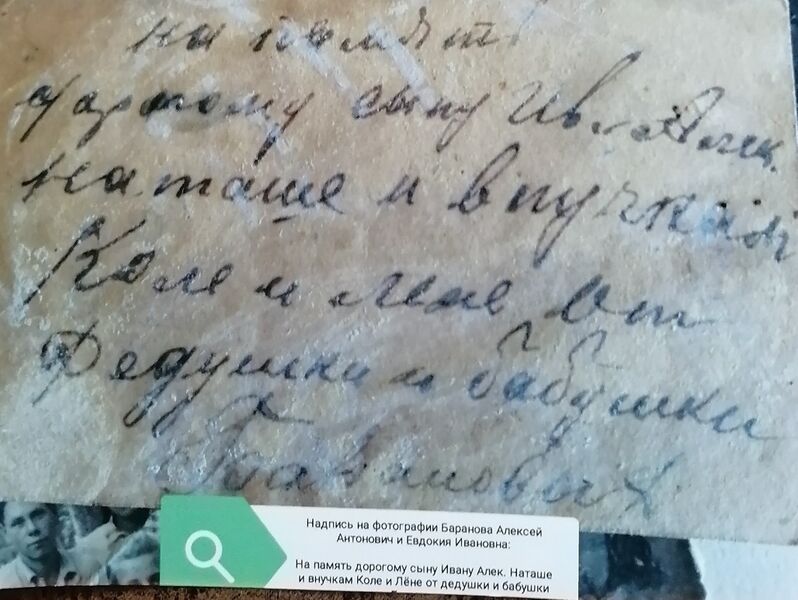 на память
дорогому сыну Ив. Алек.
наташе и внучкам
Коле и лене от
Дедушки и бабушки
Барановых
Надпись на фотографии Баранова Алексей
Антонович и Евдокия Ивановна:
На память дорогому сыну Ивану Алек. Наташе
и внучкам Коле и Лёне от дедушки и бабушки